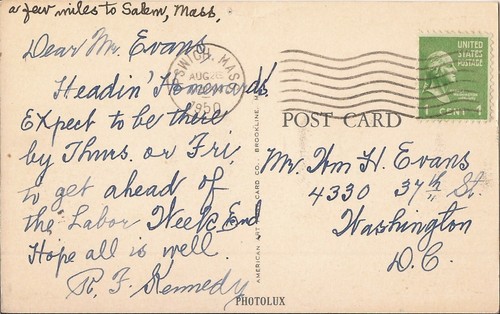 a few miles to Salem, Mass,
Dear Mr. Evans,
Headin' Homewards,
Expect to be there
by Thurs. or Fri,
to get ahead of
the Labor Week End
Hope all is well.
R. F. Kennedy
IPSWICH. MASS
AUG 28
1950
UNITED
STATES
POSTAGE
1 CENT 1
POST CARD
Mr. Wm H. Evans
4330 37th St.
Washington
D.C.
AMERICAN ART POST CARD CO., BROOKLINE, MASS.
PHOTOLUX